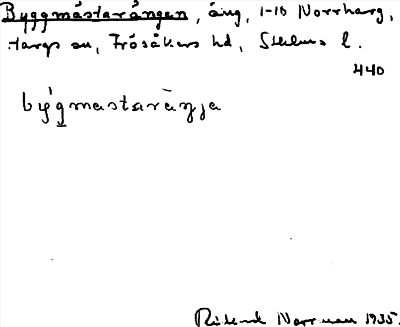 Byggmästarängen, äng, 1-10 Norrharg,
Hargs sn, Frösåkers hd, Sthlms l.
440
by̍gmastaràŋja
Rikard Norrman 1935.